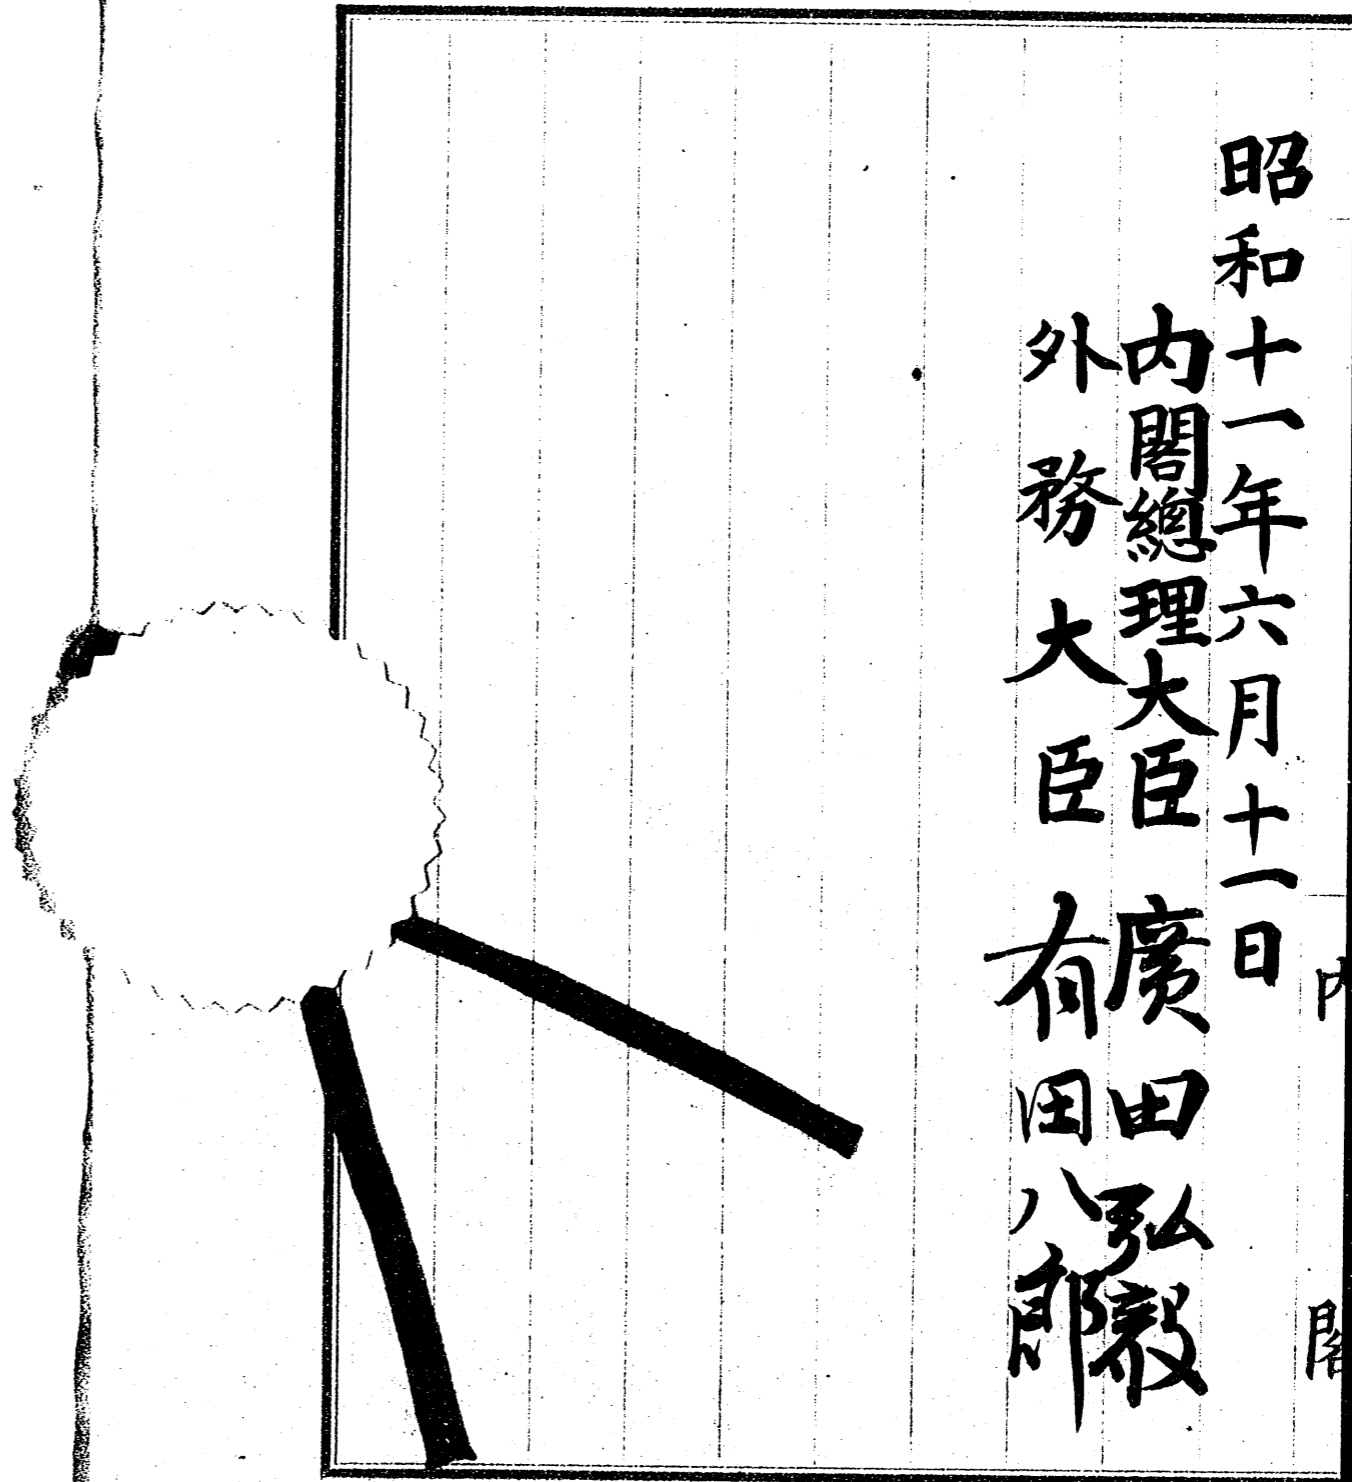 内閣
昭和十一年六月十一日
内閣總理大臣 廣田弘毅
外務大臣 有田八郎